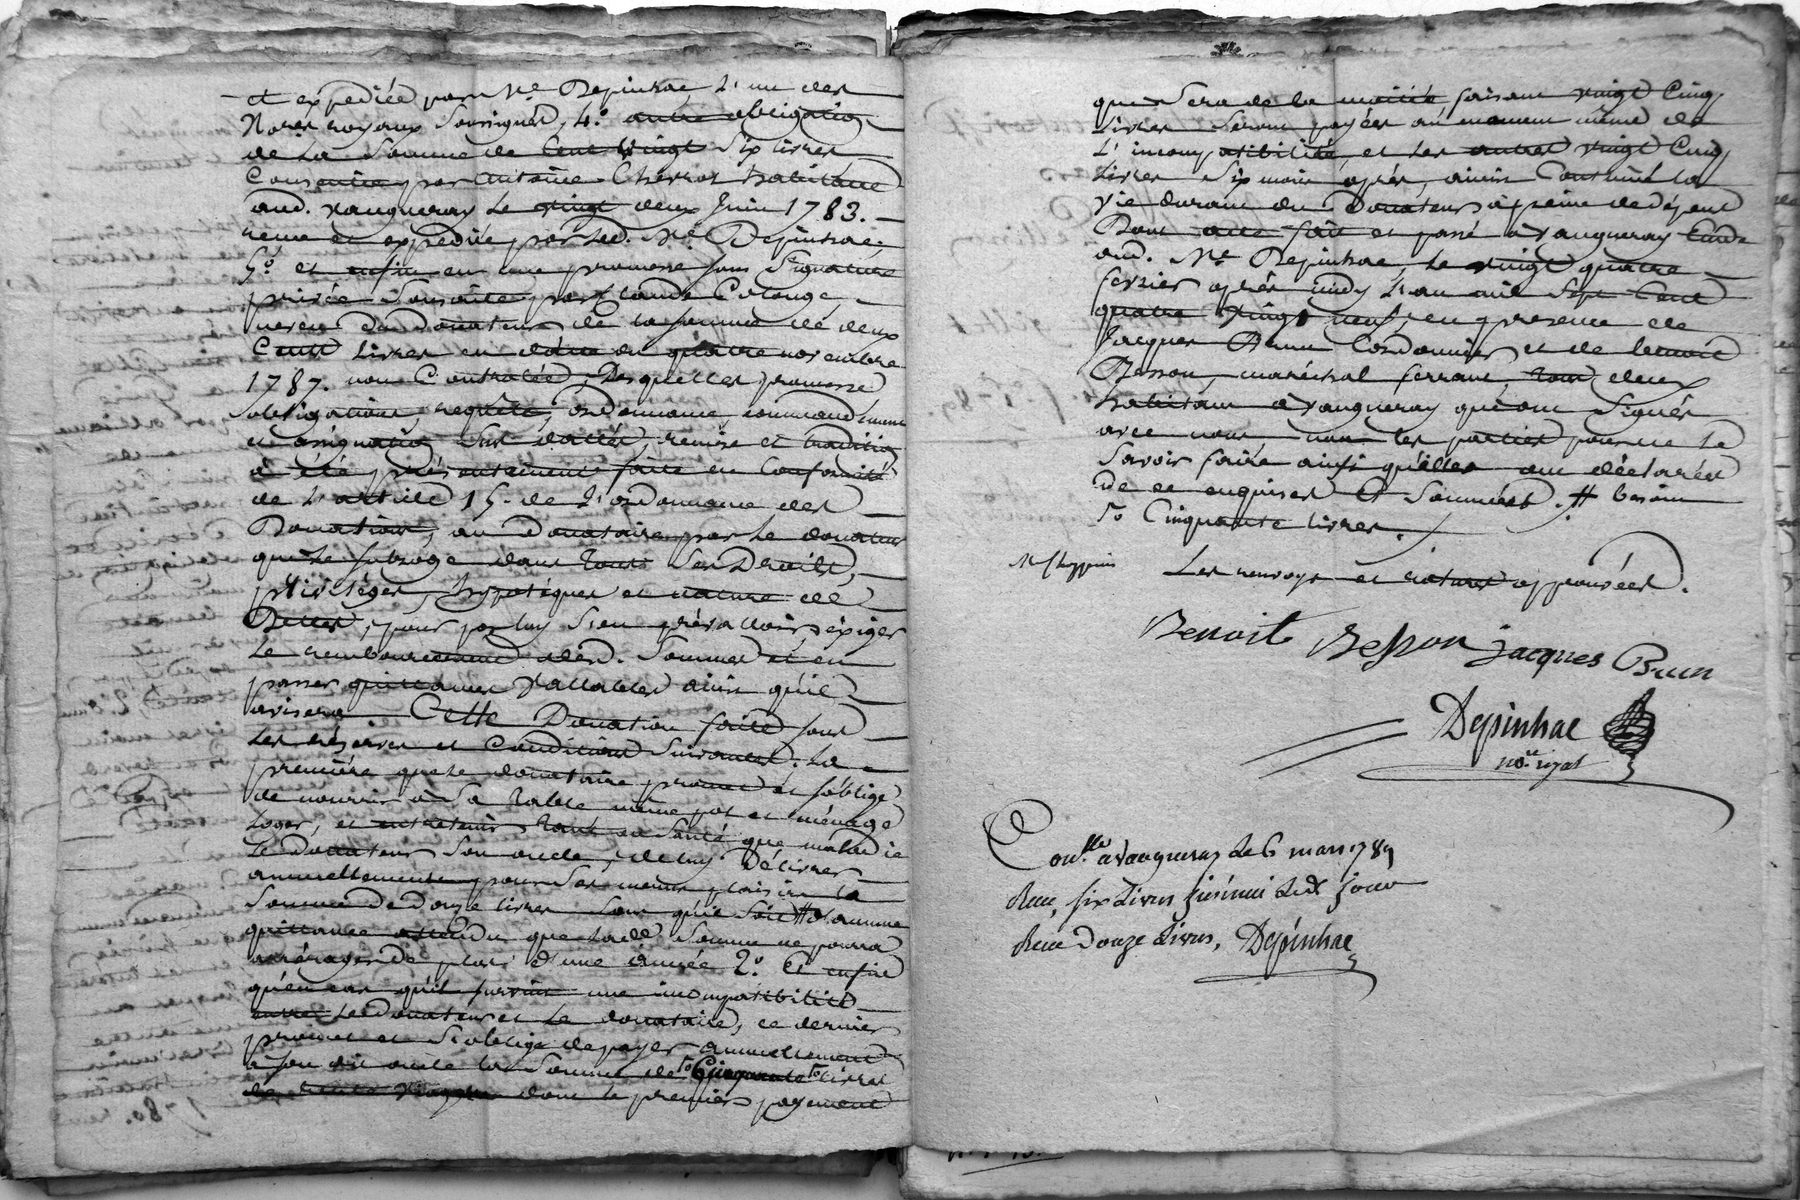 et expediée par Me Depinhac L'un des
No.res royaux Soussignés, 4.° autre obligation
de La Somme de Cent vingt Six livres
Consentie par antoine habitant
aud. vaugneray le vingt deux Juin 1783.
receue et expediée par led. Me Depinhac.
5.° et enfin en une promesse sous Signature
privée Souscrite par Claude
neveu du Donateur de la somme de deux
Cent Livres en datte du quatre novembre
1787. non Controlée, Desquelles promesse
obligations, requête, ordonnance, commandement
et assignation Sus dattés, remise et tradition
à été présentement faite en Conformité
de L'article 15. de L'ordonnance des
Donations, au Donataire par Le donateur
qui Le subroge dans Tous Ses Droits,
privilèges, hypotéques et nature de
Dettes, pour par luy S'en prévalloir, exiger
Le remboursement desd. Sommes et en
passer quittances vallables ainsi qu'il
avisera Cette Donation faite sous
Les réserves et Conditions Suivantes. La
première que le donataire promet et s'oblige
de nourrir à Sa Table même pot et ménage
Loger, et entretenir Tant en Santé que maladie
Le Donateur Son oncle, de luy Délivrer
annuellement pour Ses menus plaisirs la
Somme de Douze livres Sans qu'il Soit #
quittance attendu que lad. Somme ne pourra
arérager de plus d'une année 2.° Et enfin
qu'en cas qu'il survint une incompatibilité
entre Le Donateur et Le donataire, ce dernier
promet et S'oblige de payer annuellement
à Son dit oncle la Somme de Cinquante livres
dont le premier payement
que Sera de la moitié faisant vingt Cinq
Livres Seront payées au moment même de
L'incompatibilité, et Les autres vingt Cinq
Livres Six mois après, ainsi Continué la
vie durant du Donateur à peine de dépens
Dont acte fait et passé à vaugneray Etude
aud. Me Depinhac, Le vingt quatre
fevrier après midy L'an mil Sept Cent
quatre vingt neuf, en présence de
Jacques Brun Cordonnier et de benoit
Besson, maréchal ferrant, tous deux
habitans à vaugneray qui ont Signés
avec nous, non les parties pour ne le
Savoir faire ainsi qu'elles ont déclarées
de ce enquises et Sommées. # besoin
5° Cinquante livres.
Les renvoys et ratures approuvées.
Benoit Besson Jacques Brun
Depinhac
no.re royal
Con.lle a vaugneray Le 6 mars 1789
Recu Six Livres
Recu Douze Livres, Depinhac